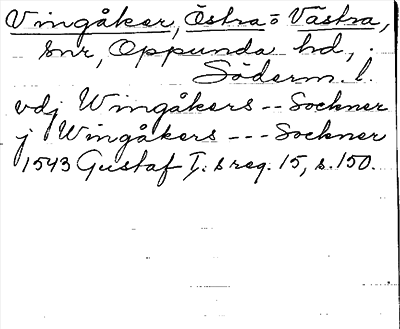 Vingåker, Östra o Västra,
snr, Oppunda hd,
Söderm. l.
vdj Wingåkers -- Sochner
j Wingåkers --- Sochner
1543 Gustaf I:s reg. 15, s. 150.